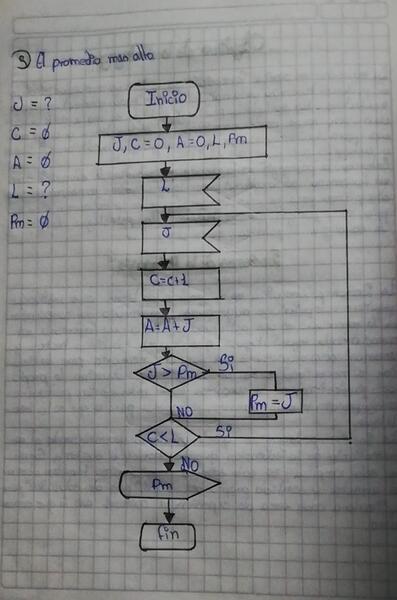 3) El promedio mas alto
J = ?
C = ∅
A = ∅
L = ?
Pm = ∅
Inicio
J, C = 0, A = 0, L, Pm
L
J
C = c+1
A = A + J
J > Pm
Si
Pm = J
NO
C < L
Si
NO
Pm
fin